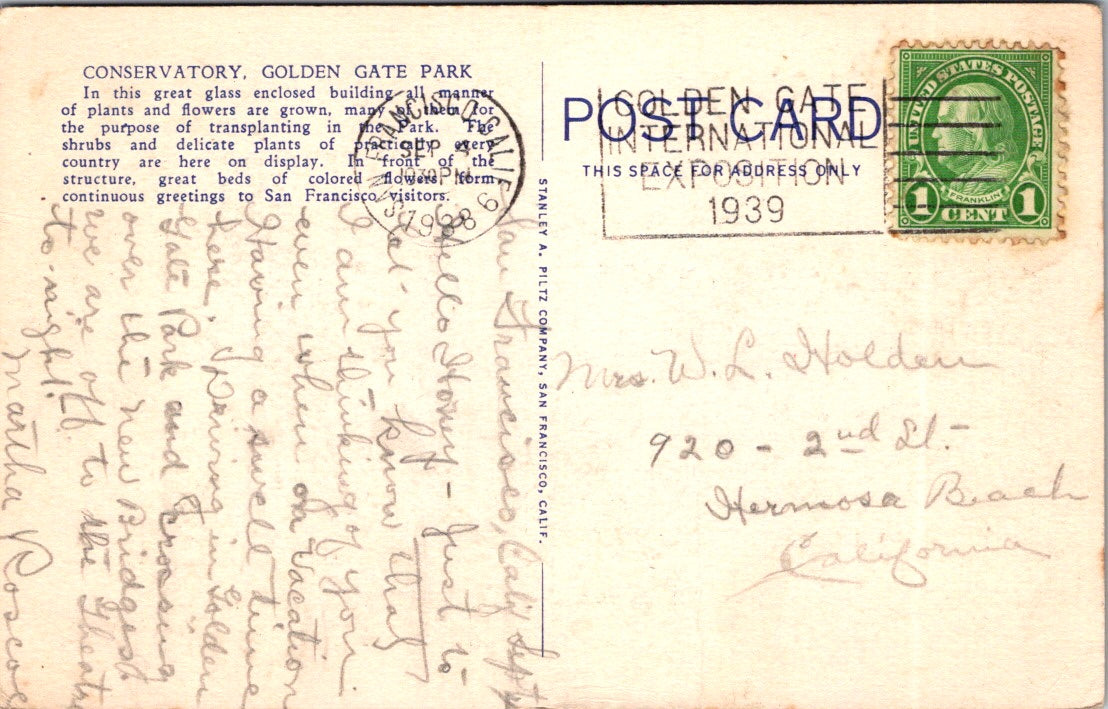 CONSERVATORY, GOLDEN GATE PARK
In this great glass enclosed building all manner
of plants and flowers are grown, many of them for
the purpose of transplanting in the Park. The
shrubs and delicate plants of practically every
country are here on display. In front of the
structure, great beds of colored flowers form
continuous greetings to San Francisco visitors.
SAN FRANCISCO, CALIF.
SEP
1030 PM
1938
6
POST CARD
THIS SPACE FOR ADDRESS ONLY
GOLDEN GATE
INTERNATIONAL
EXPOSITION
1939
UNITED STATES POSTAGE
FRANKLIN
1 CENT 1
STANLEY A. PILTZ COMPANY, SAN FRANCISCO, CALIF.
San Francisco, Calif Sept
Hello - Just to
let you know that
I am thinking of you
even when on Vacation
Having a swell time
here, Driving in Golden
Gate Park and Crossing
over the new Bridges
we are off to the Theatre
to-night.
Martha Roscoe
Mrs. W. L. Holden
920 - 2nd St.
Hermosa Beach
California